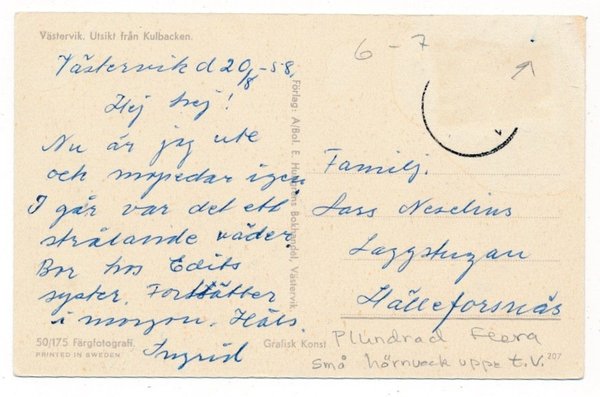 Västervik. Utsikt från Kulbacken.
Västervik d 20/8 -58.
Hej hej!
Nu är jag ute
och mopedar igen.
I går var det ett
strålande väder.
Bor hos Edits
syster. Fortsätter
i morgon. Häls.
Ingrid
50/175 Färgfotografi.
PRINTED IN SWEDEN
Förlag: A/Bol. E. Bokhandel, Västervik
Grafisk Konst
6 - 7
Familj.
Lars Neselius
Laggstugan
Hälleforsnäs
Plundrad Flera
små hörnveck uppe t.v.
207